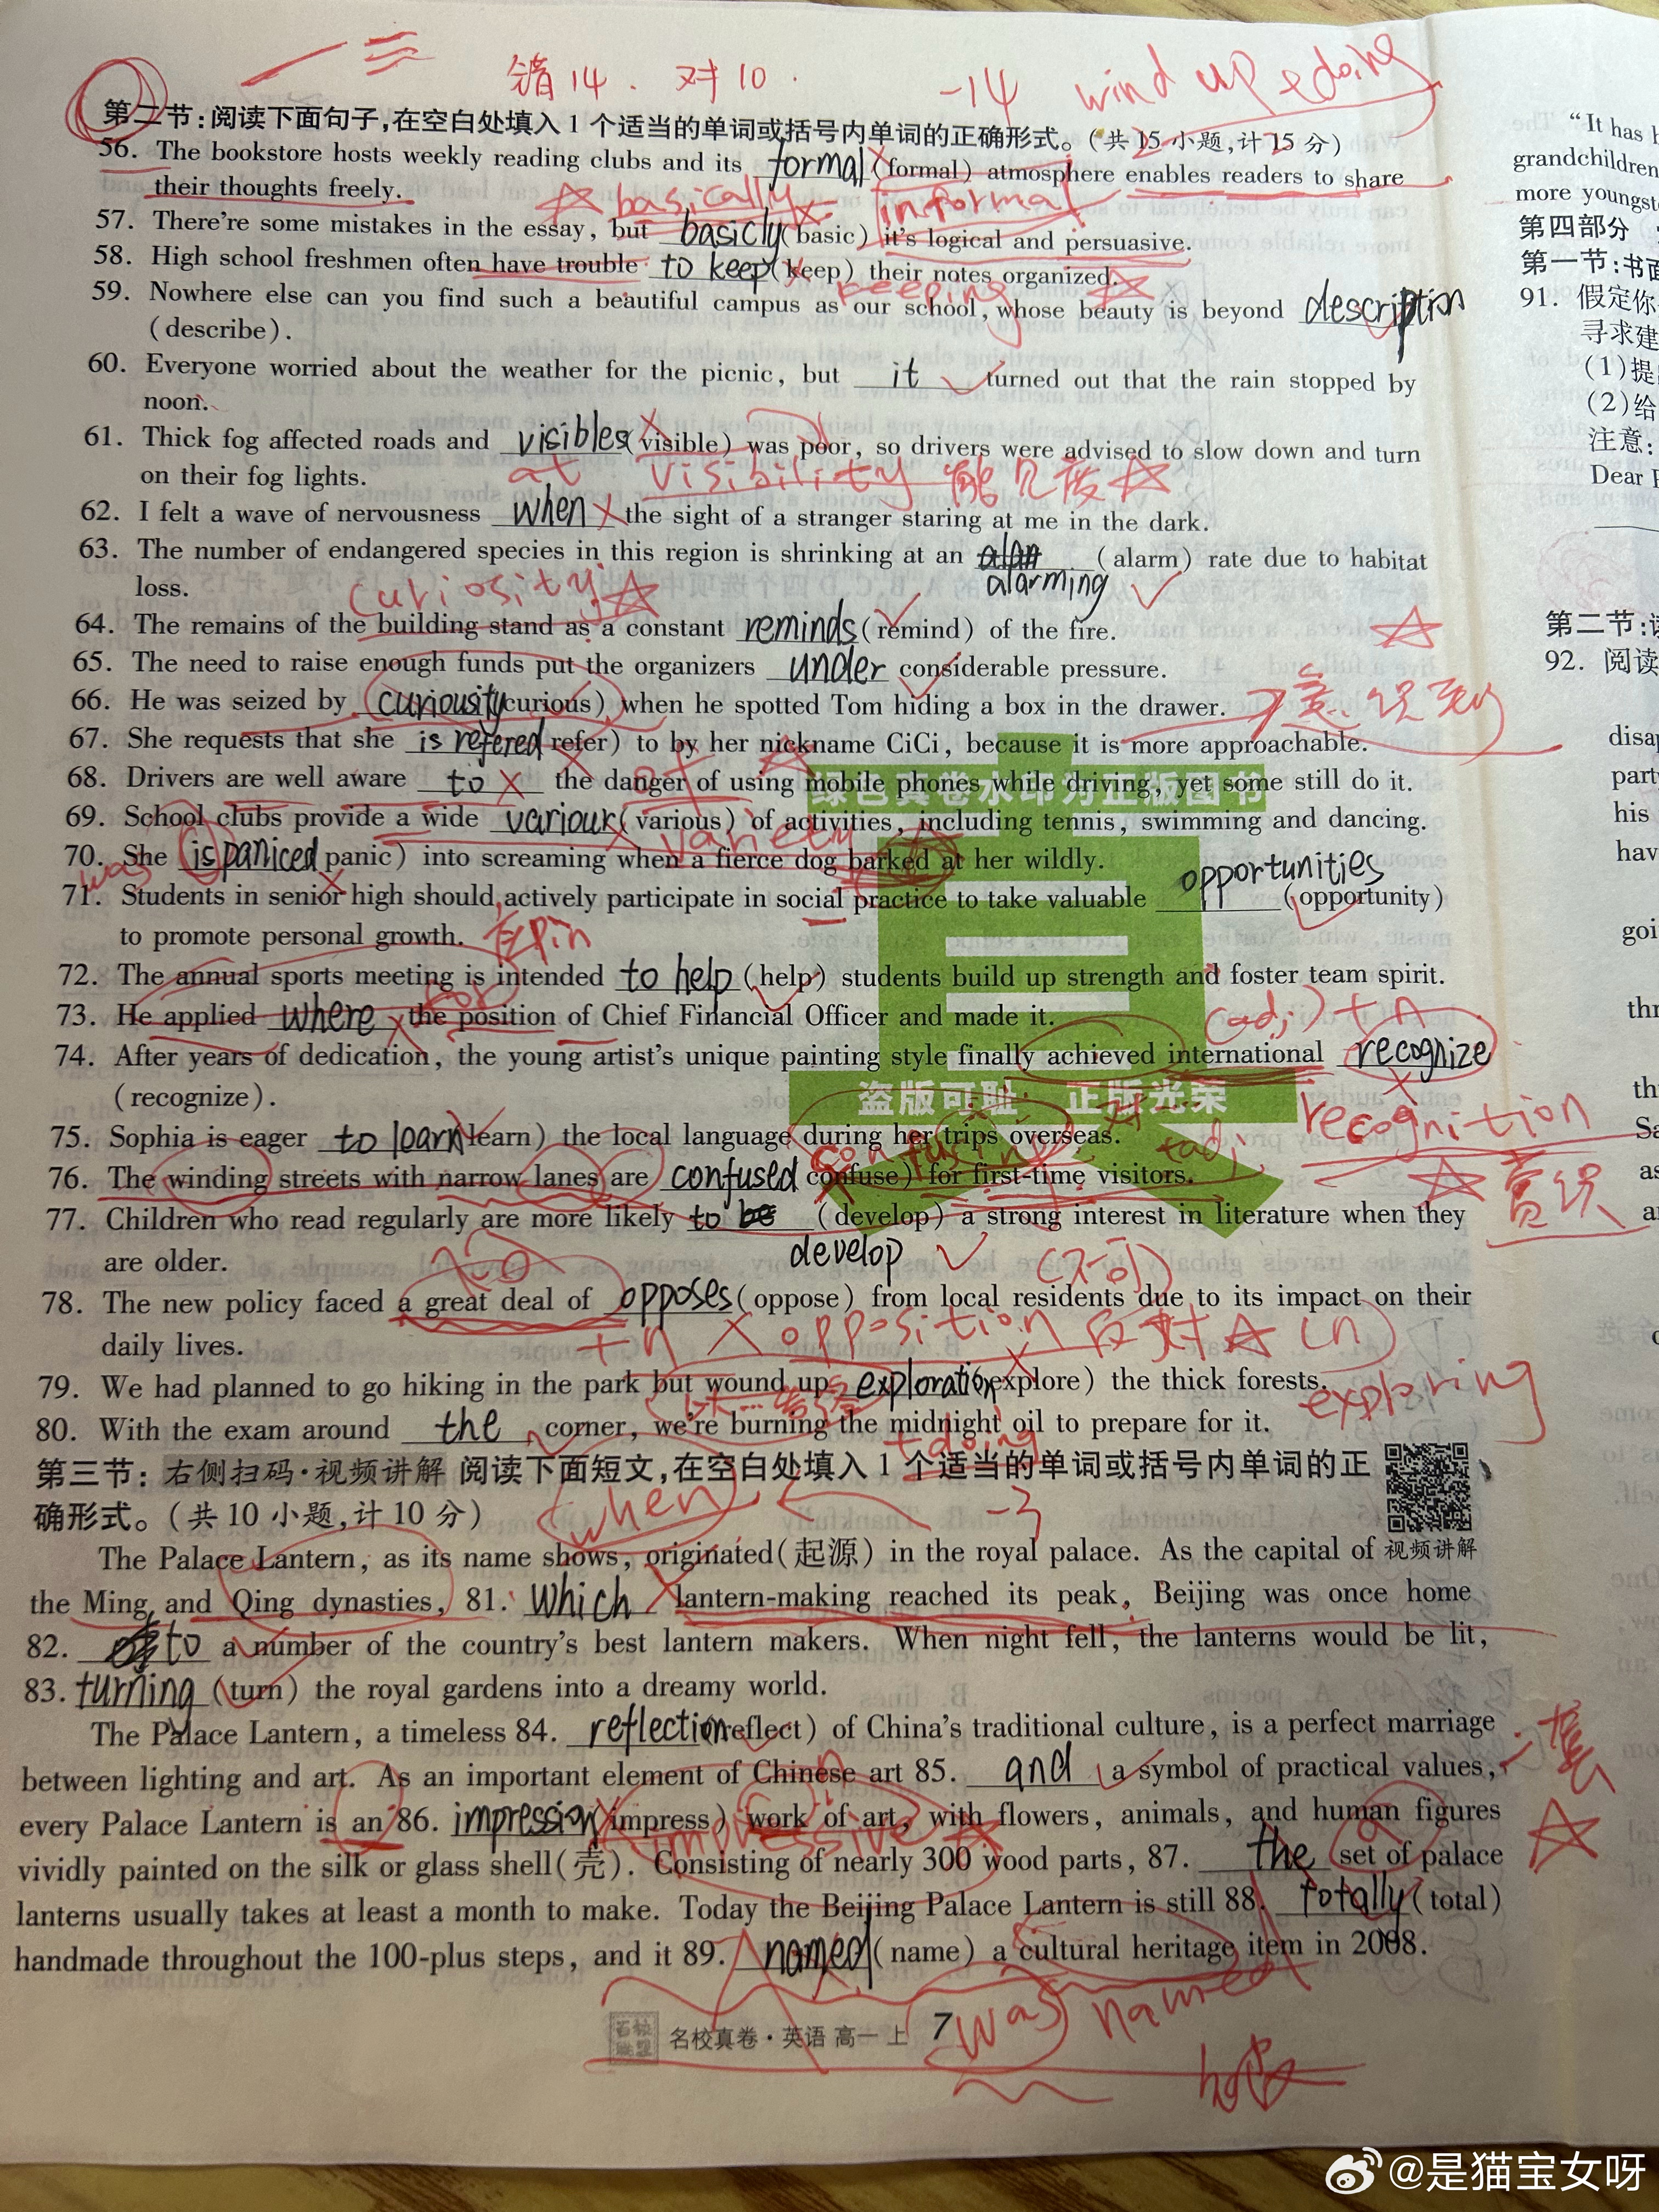 错14. 对10.
-14 wind up doing
第二节:阅读下面句子,在空白处填入1个适当的单词或括号内单词的正确形式。(共15小题,计15分)
56. The bookstore hosts weekly reading clubs and its formal (formal) atmosphere enables readers to share
their thoughts freely.
basically informal
57. There're some mistakes in the essay, but basicly (basic) it's logical and persuasive.
58. High school freshmen often have trouble to keep (keep) their notes organized.
keeping
59. Nowhere else can you find such a beautiful campus as our school, whose beauty is beyond description
(describe).
60. Everyone worried about the weather for the picnic, but it turned out that the rain stopped by
noon.
61. Thick fog affected roads and visibles (visible) was poor, so drivers were advised to slow down and turn
on their fog lights.
at visibility 能见度
62. I felt a wave of nervousness when the sight of a stranger staring at me in the dark.
63. The number of endangered species in this region is shrinking at an alarming (alarm) rate due to habitat
loss.
curiosity
64. The remains of the building stand as a constant reminds (remind) of the fire.
65. The need to raise enough funds put the organizers under considerable pressure.
66. He was seized by curiousity (curious) when he spotted Tom hiding a box in the drawer.
意识到
67. She requests that she is refered (refer) to by her nickname CiCi, because it is more approachable.
of
68. Drivers are well aware to the danger of using mobile phones while driving, yet some still do it.
绿色真卷水印为正版图书
69. School clubs provide a wide variour (various) of activities, including tennis, swimming and dancing.
variety
70. She is paniced (panic) into screaming when a fierce dog barked at her wildly.
was
71. Students in senior high should actively participate in social practice to take valuable opportunities (opportunity)
to promote personal growth.
72. The annual sports meeting is intended to help (help) students build up strength and foster team spirit.
for
73. He applied where the position of Chief Financial Officer and made it.
(adj) + n
74. After years of dedication, the young artist's unique painting style finally achieved international recognize
(recognize).
盗版可耻 正版光荣
recognition
75. Sophia is eager to learn (learn) the local language during her trips overseas.
confusing
+adj
76. The winding streets with narrow lanes are confused (confuse) for first-time visitors.
赏识
77. Children who read regularly are more likely to develop (develop) a strong interest in literature when they
are older.
(不可)
78. The new policy faced a great deal of opposes (oppose) from local residents due to its impact on their
daily lives.
+n opposition 反对 (n)
79. We had planned to go hiking in the park but wound up exploration (explore) the thick forests.
exploring
80. With the exam around the corner, we're burning the midnight oil to prepare for it.
+doing
第三节:右侧扫码·视频讲解 阅读下面短文,在空白处填入1个适当的单词或括号内单词的正
确形式。(共10小题,计10分)
when -3
The Palace Lantern, as its name shows, originated(起源) in the royal palace. As the capital of
视频讲解
the Ming and Qing dynasties, 81. which lantern-making reached its peak, Beijing was once home
82. to a number of the country's best lantern makers. When night fell, the lanterns would be lit,
83. turning (turn) the royal gardens into a dreamy world.
The Palace Lantern, a timeless 84. reflection (reflect) of China's traditional culture, is a perfect marriage
between lighting and art. As an important element of Chinese art 85. and a symbol of practical values,
一套
every Palace Lantern is an 86. impression (impress) work of art, with flowers, animals, and human figures
impressive a
vividly painted on the silk or glass shell(壳). Consisting of nearly 300 wood parts, 87. the set of palace
lanterns usually takes at least a month to make. Today the Beijing Palace Lantern is still 88. totally (total)
handmade throughout the 100-plus steps, and it 89. named (name) a cultural heritage item in 2008.
was named
名校真卷·英语 高一 上 7
"It has
grandchildren
more youngst
第四部分
第一节:书面
91. 假定你
寻求建
(1)提
(2)给
注意:
Dear
第二节:
92. 阅读
disap
party
his
hav
goi
thr
th
Sa
as
@是猫宝女呀